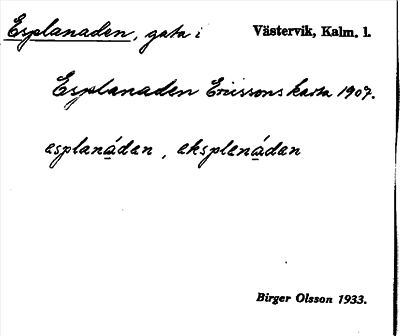 Esplanaden, gata i Västervik, Kalm. l.
Esplanaden Ericssons karta 1907.
esplanáden, eksplenáden
Birger Olsson 1933.